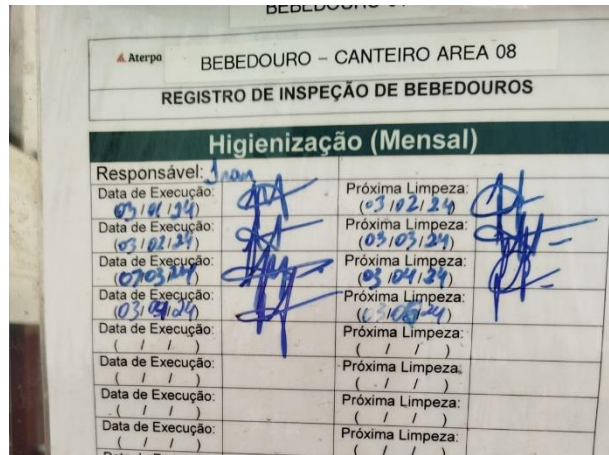 BEBEDOURO
Aterpa
BEBEDOURO – CANTEIRO AREA 08
REGISTRO DE INSPEÇÃO DE BEBEDOUROS
Higienização (Mensal)
Responsável:
Data de Execução: Próxima Limpeza:
(03/01/24) (03/02/24)
Data de Execução: Próxima Limpeza:
(03/02/24) (03/03/24)
Data de Execução: Próxima Limpeza:
(07/03/24) (03/04/24)
Data de Execução: Próxima Limpeza:
(03/04/24) (03/05/24)
Data de Execução: Próxima Limpeza:
( / / ) ( / / )
Data de Execução: Próxima Limpeza:
( / / ) ( / / )
Data de Execução: Próxima Limpeza:
( / / ) ( / / )
Data de Execução: Próxima Limpeza:
( / / ) ( / / )